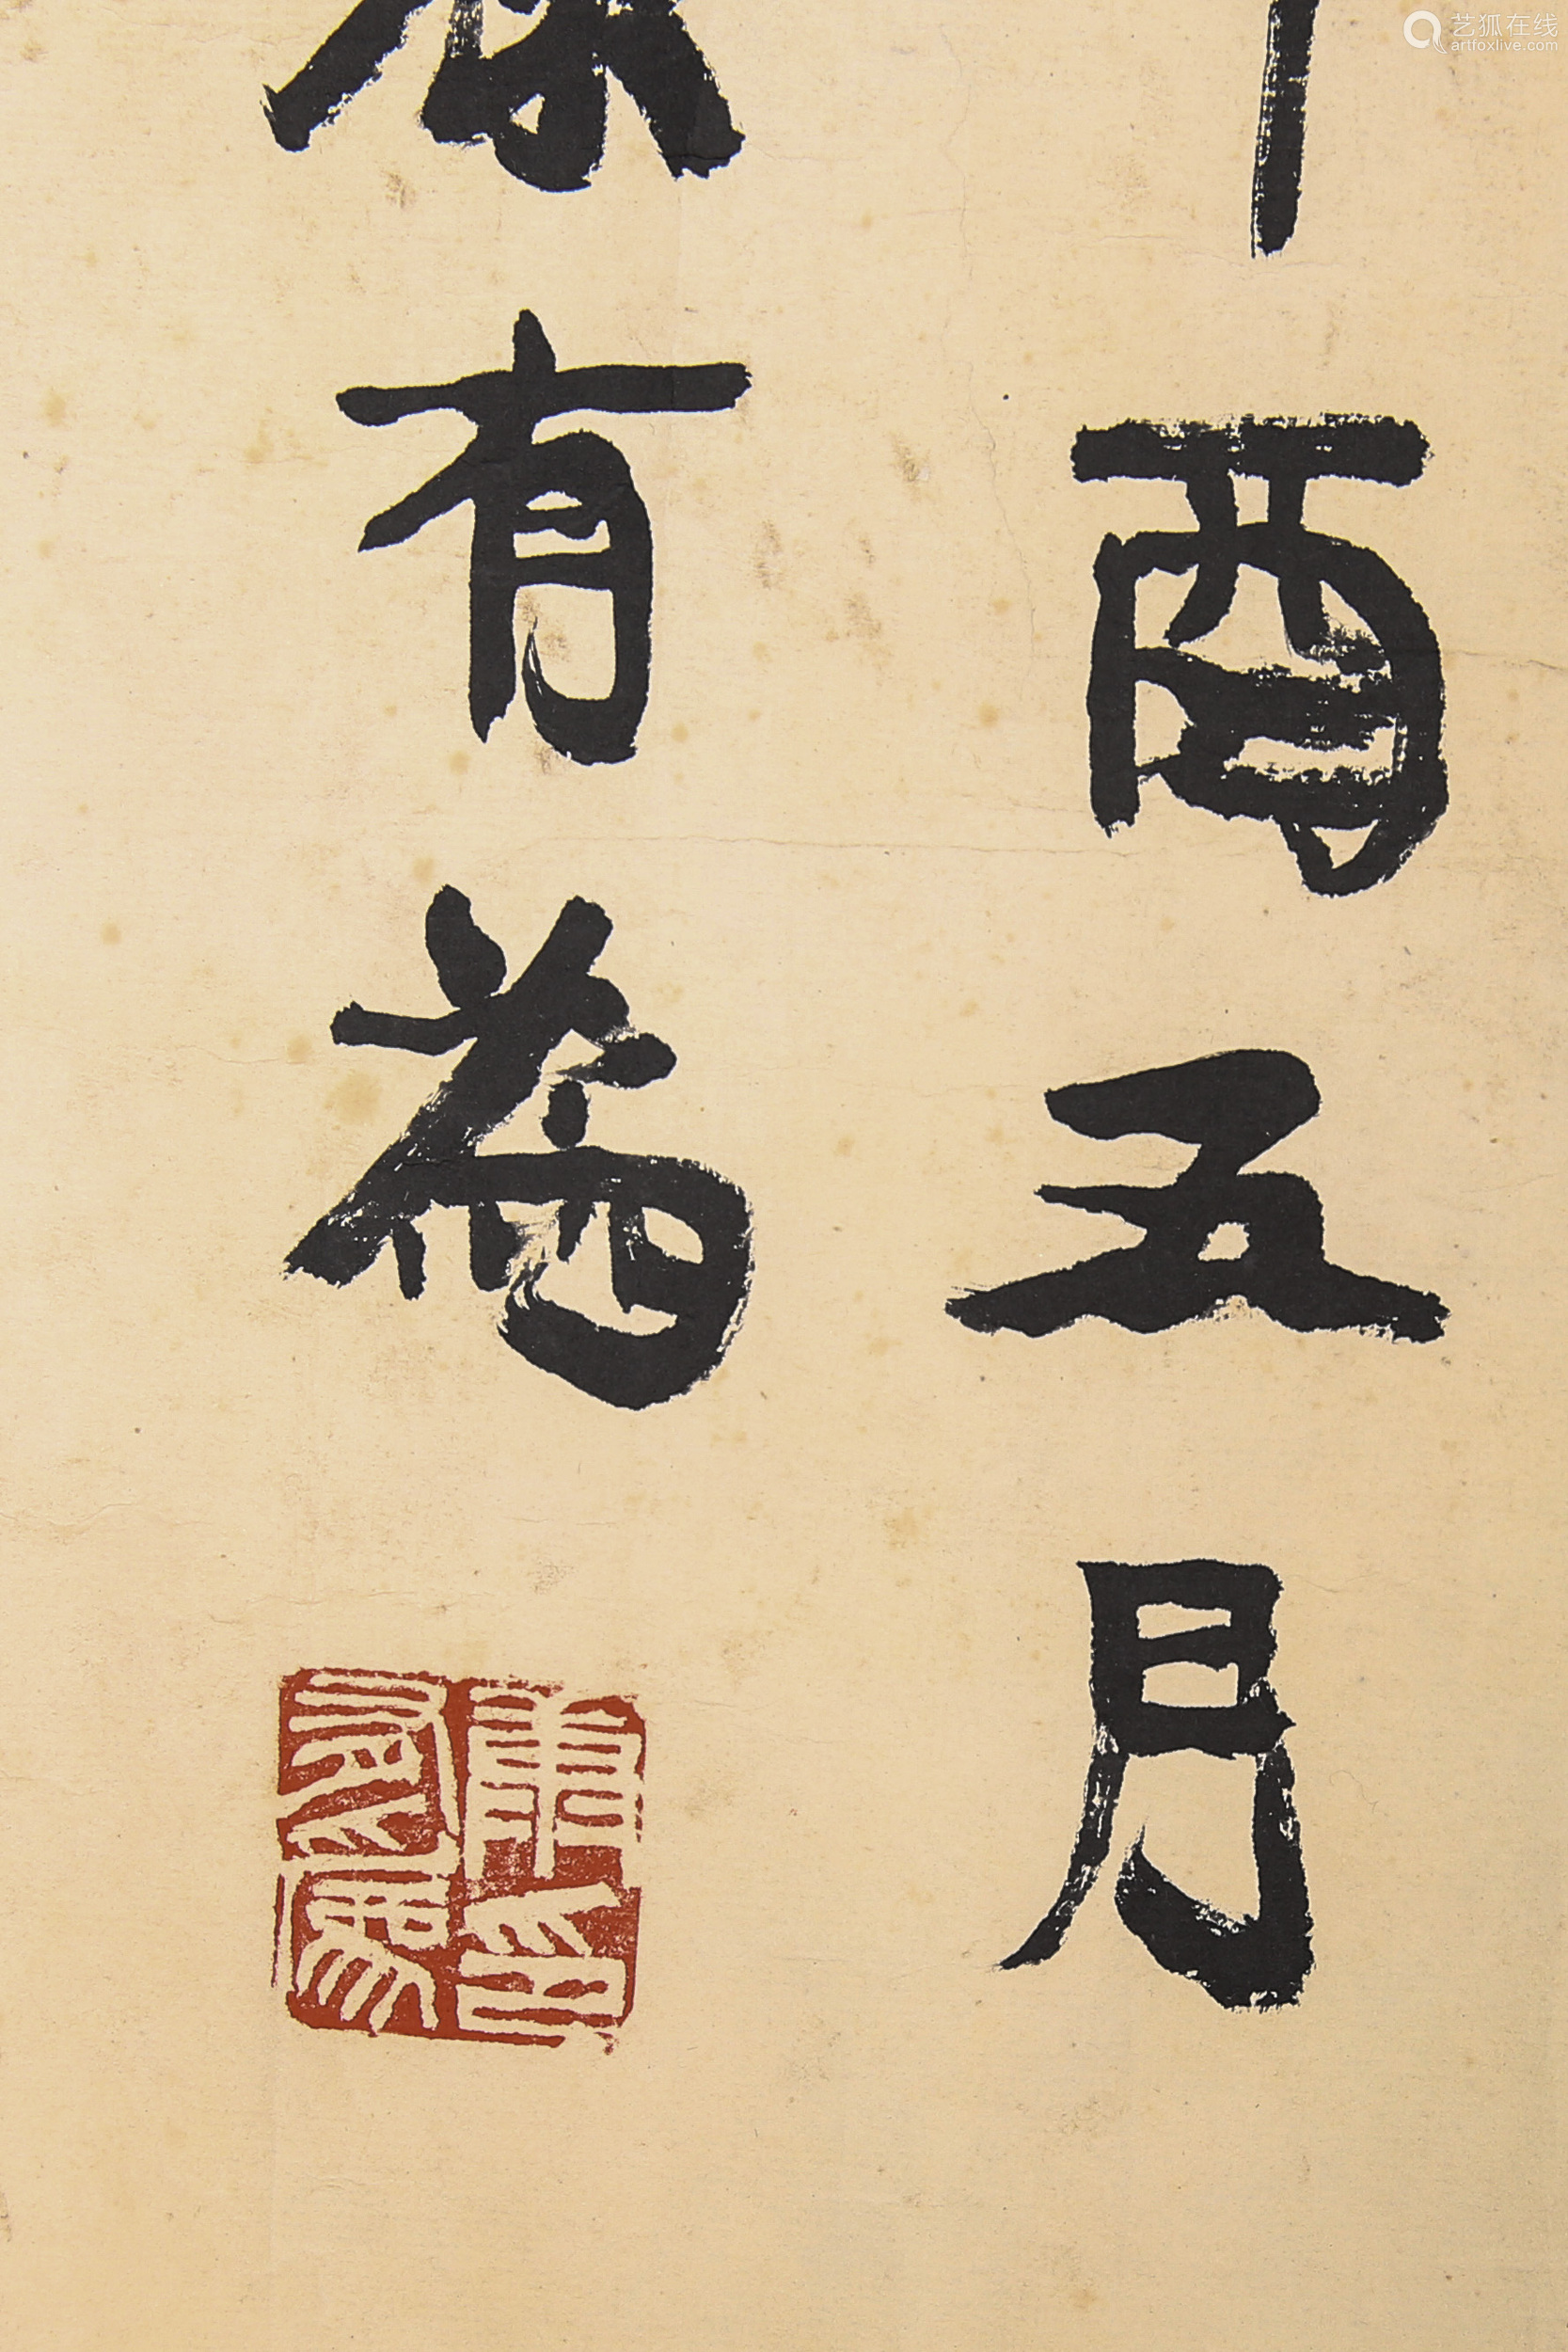 酉五月
有為
康有為印
艺狐在线
artfoxlive.com